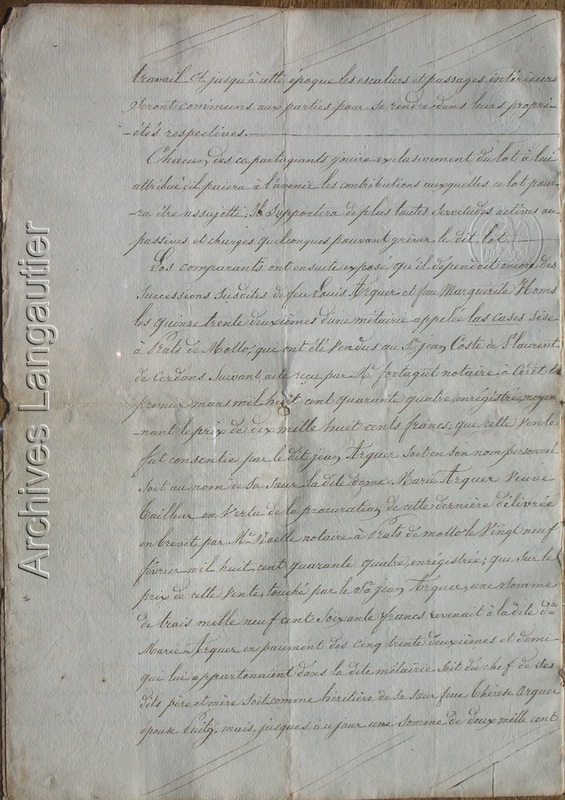 travail et jusqu'à cette époque les escaliers et passages intérieurs
seront communs aux parties pour se rendre dans leurs propri-
-étés respectives.
Chacun des copartageants jouira exclusivement du lot à lui
attribué, il paiera à l'avenir les contributions auxquelles ce lot pour-
-ra être assujetti. Il supportera de plus toutes servitudes actives ou
passives et charges quelconques pouvant grèver le dit lot.
Les comparants ont ensuite exposé qu'il dépendoit encore des
successions susdites de feu Louis Arquer et feu Marguerite Homs
les quinze trente deuxièmes d'une métairie appelée las cases sise
à Prats de Mollo, que ont été vendus au Sr. jean Coste de St laurent
de Cerdans suivant acte reçu par Me. fortagut notaire à Céret le
premier mars mil huit cent quarante quatre, enrégistré, moyen-
-nant le prix de dix mille huit cents francs; que cette vente
fut consentie par le dit jean Arquer soit en son nom personnel
soit au nom de sa sœur la dite dame Marie Arquer veuve
Cailleur en vertu de la procuration de cette dernière délivrée
en brevité par Me. Noelle notaire à Prats de mollo le vingt neuf
février mil huit cent quarante quatre, enrégistrée; que sur le
prix de cette vente, touché par le Sr. jean Arquer, une somme
de trois mille neuf cent soixante francs revenait à la dite de.
Marie Arquer en paiement des cinq trente deuxièmes et demi
que lui appartenaient dans la dite métairie soit du chef de ses
dits père et mère soit comme héritière de sa sœur feue Thérèse Arquer
épouse Puily, mais, jusques à ce jour une somme de deux mille cent
Archives Langautier